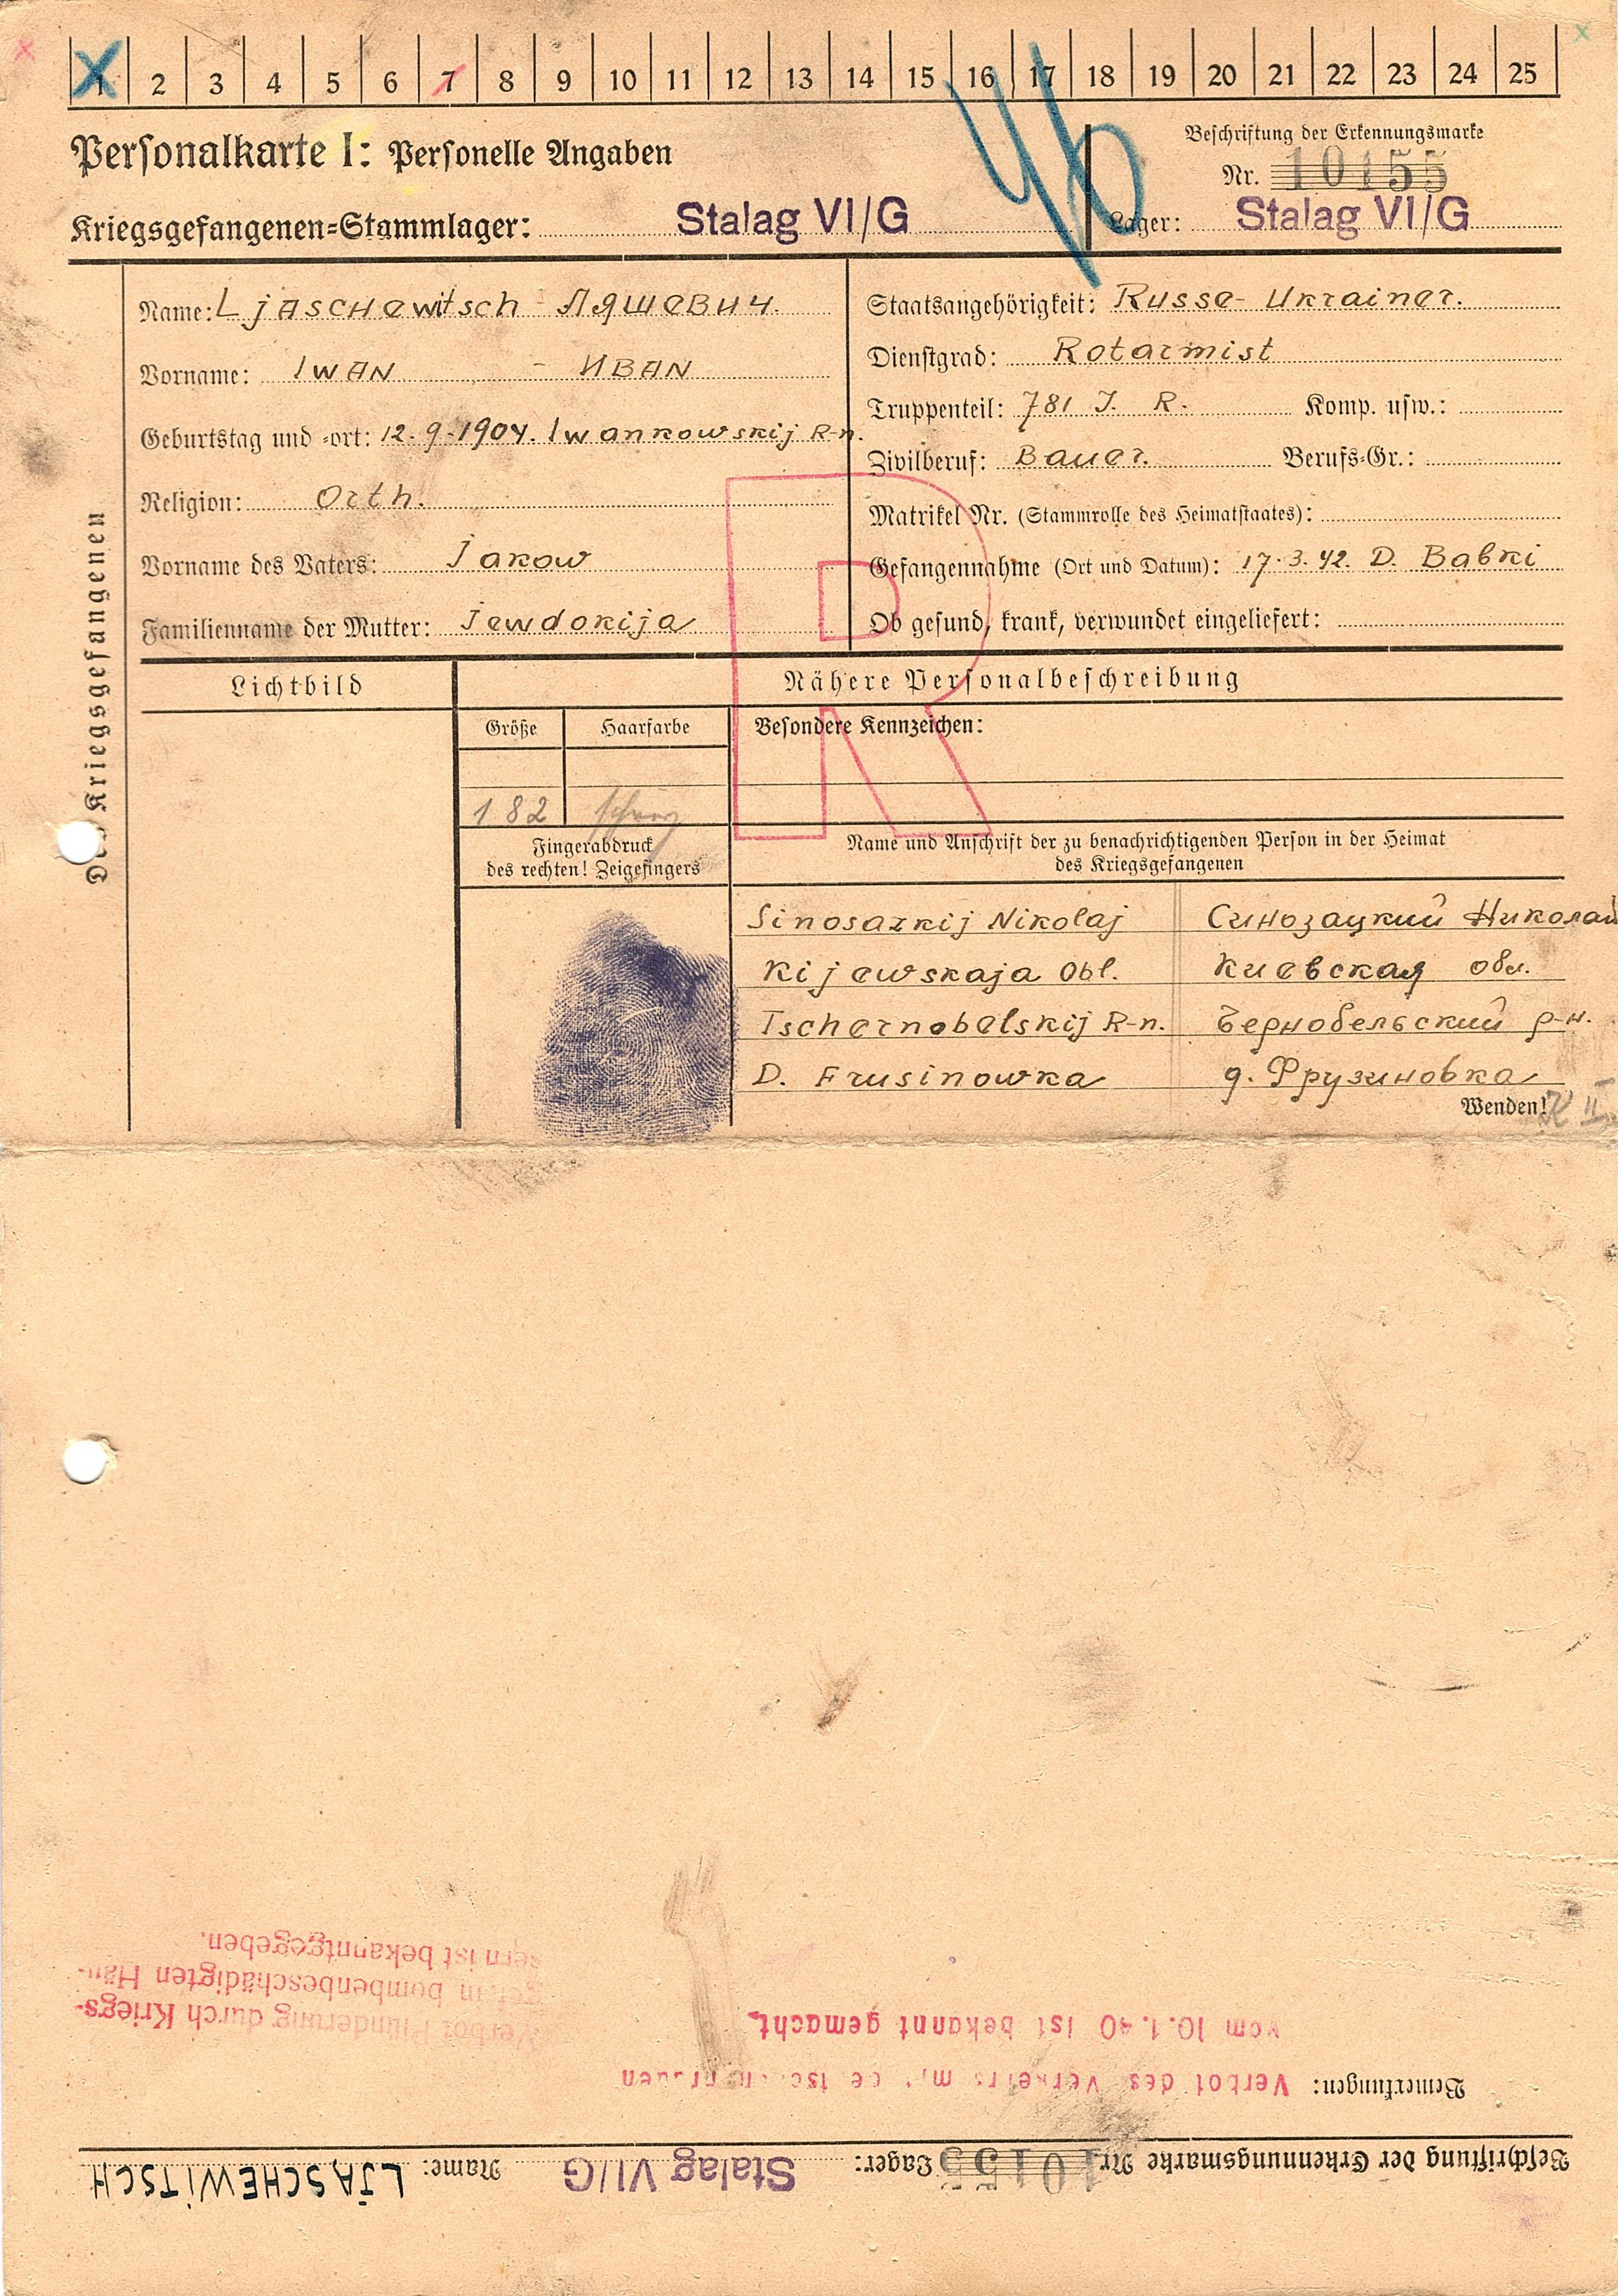 1 2 3 4 5 6 7 8 9 10 11 12 13 14 15 16 17 18 19 20 21 22 23 24 25
Personalkarte I: Personelle Angaben
Beschriftung der Erkennungsmarke
Nr. 10155
Kriegsgefangenen-Stammlager: Stalag VI/G
Lager: Stalag VI/G
Des Kriegsgefangenen
Name: Ljaschewitsch - Ляшевич.
Vorname: Iwan - Иван
Geburtstag und -ort: 12.9.1904. Iwankowskij R-n.
Religion: Orth.
Vorname des Vaters: Jakow
Familienname der Mutter: Jewdokija
Staatsangehörigkeit: Russe- Ukrainer.
Dienstgrad: Rotarmist
Truppenteil: 781 J. R. Komp. usw.:
Zivilberuf: Bauer. Berufs-Gr.:
Matrikel Nr. (Stammrolle des Heimatstaates):
Gefangennahme (Ort und Datum): 17.3.42. D. Babki
Ob gesund, krank, verwundet eingeliefert:
R
Lichtbild
Nähere Personalbeschreibung
Größe
Haarfarbe
Besondere Kennzeichen:
182
Fingerabdruck
des rechten! Zeigefingers
Name und Anschrift der zu benachrichtigenden Person in der Heimat
des Kriegsgefangenen
Sinosazkij Nikolaj Синозацкий Николай
Kijewskaja Obl. Киевская обл.
Tschernobelskij R-n. Чернобельский р-н.
D. Frusinowka д. Фрузиновка
Wenden!
Beschriftung der Erkennungsmarke Nr. 10155 Lager: Stalag VI/G Name: LJASCHEWITSCH
Bemerkungen: Verbot des Verkehrs mit deutschen Frauen
vom 10.1.40 ist bekannt gemacht.
Verbot Plünderung durch Kriegs-
gef. in bombenbeschädigten Häu-
sern ist bekanntgegeben.